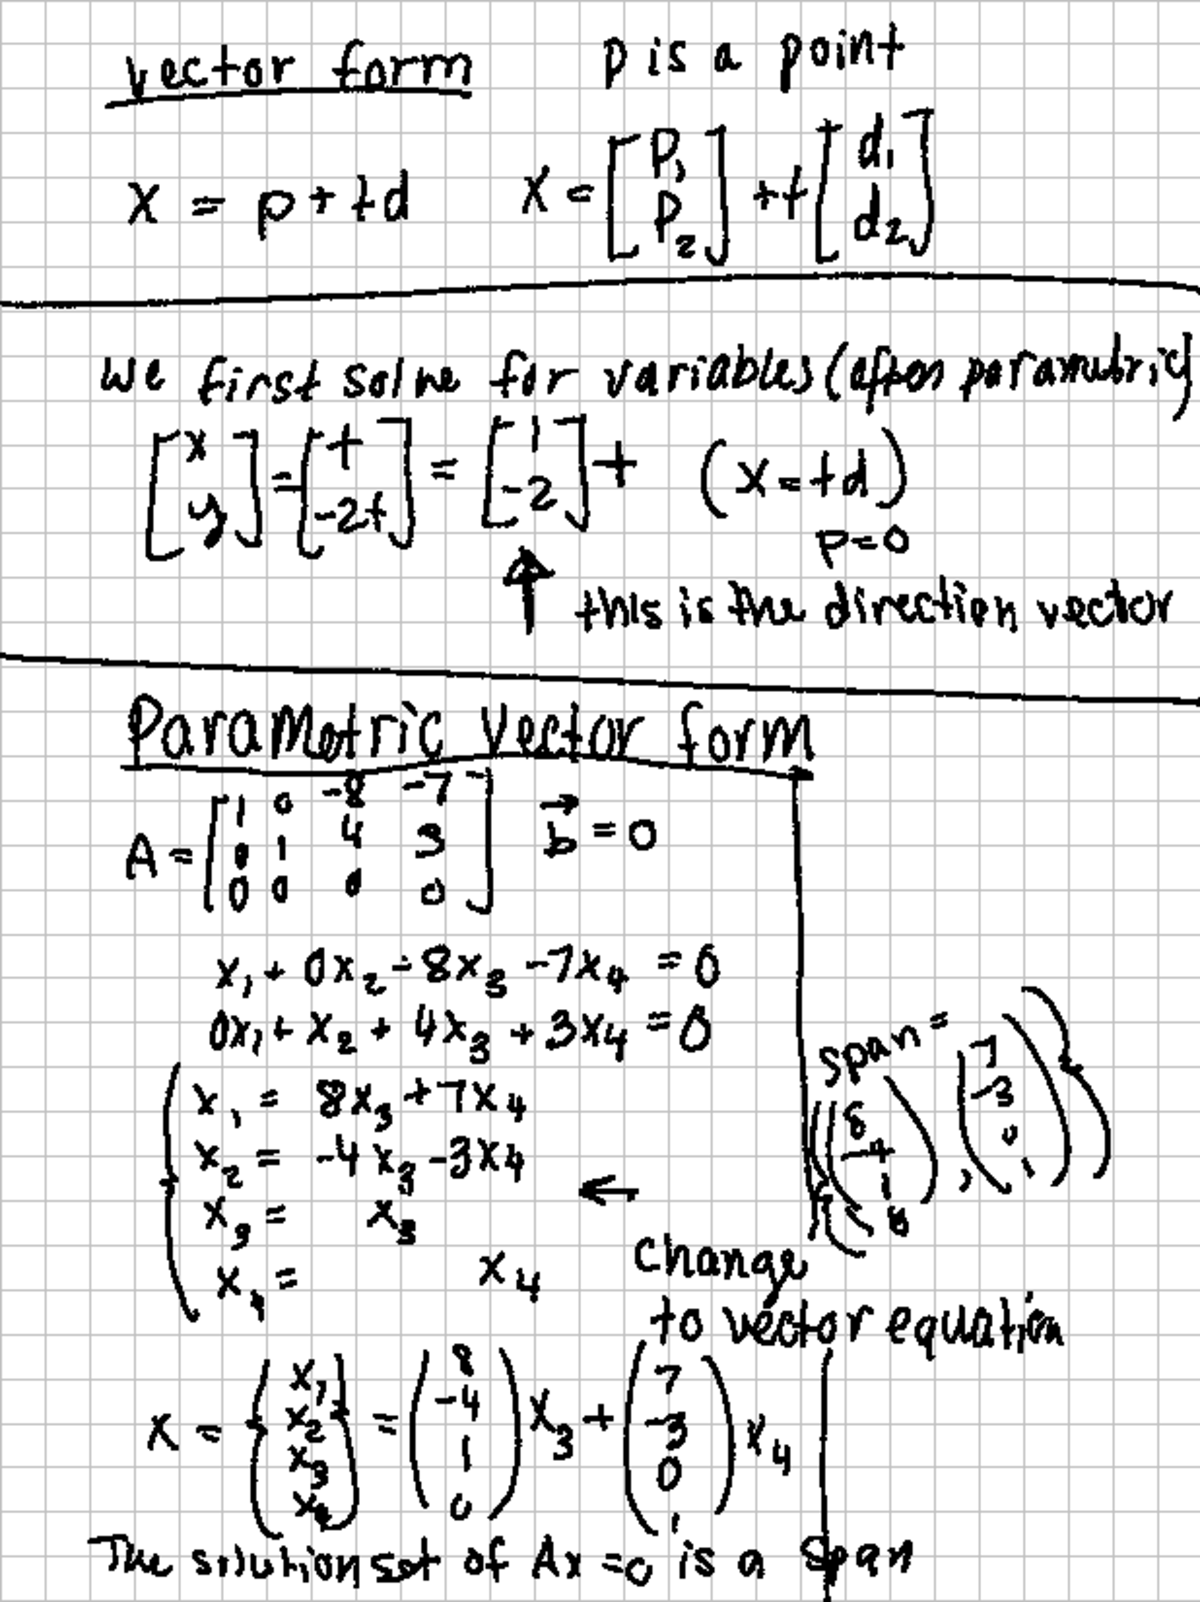 vector form p is a point
x = p + td x = [p₁ p₂] + t[d₁ d₂]
we first solve for variables (often parametric)
[x y] = [t -2t] = [1 -2] t (x = td)
p=0
↑ this is the direction vector
Parametric Vector form
A = [1 0 -8 -7
0 1 4 3
0 0 0 0] b⃗ = 0
x₁ + 0x₂ - 8x₃ - 7x₄ = 0
0x₁ + x₂ + 4x₃ + 3x₄ = 0
x₁ = 8x₃ + 7x₄
x₂ = -4x₃ - 3x₄
x₃ = x₃
x₄ = x₄
← change
to vector equation
span =
{(8 -4 1 0), (7 -3 0 1)}
x = {x₁ x₂ x₃ x₄} = (8 -4 1 0) x₃ + (7 -3 0 1) x₄
The solution set of Ax = 0 is a span